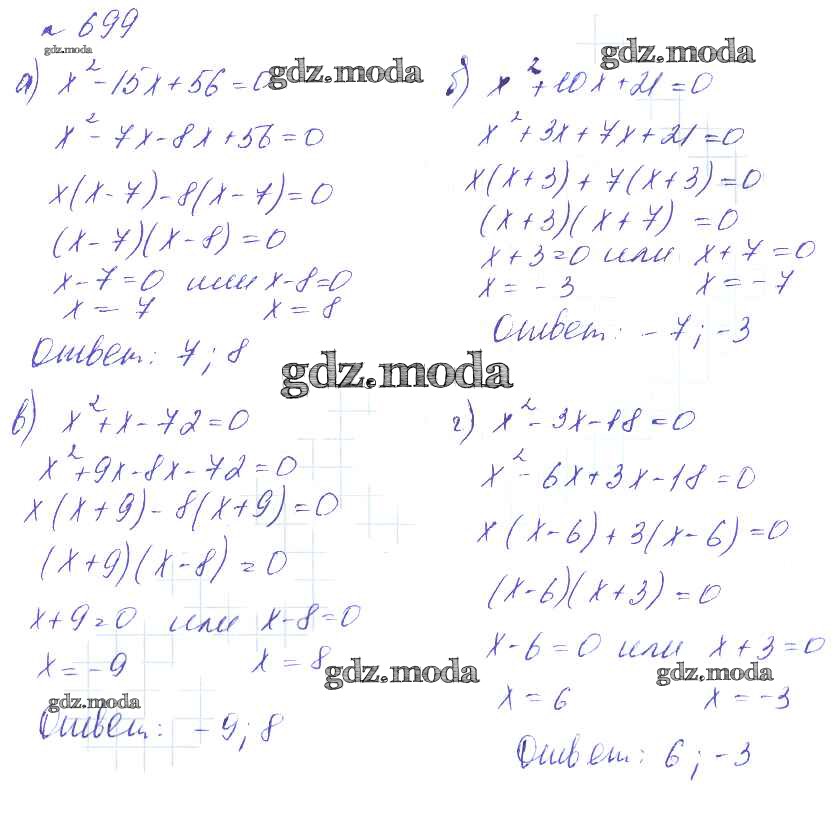 № 699
gdz.moda
а) x² - 15x + 56 = 0
gdz.moda
x² - 7x - 8x + 56 = 0
x(x - 7) - 8(x - 7) = 0
(x - 7)(x - 8) = 0
x - 7 = 0 или x - 8 = 0
x = 7 x = 8
Ответ: 7; 8
gdz.moda
б) x² + 10x + 21 = 0
x² + 3x + 7x + 21 = 0
x(x + 3) + 7(x + 3) = 0
(x + 3)(x + 7) = 0
x + 3 = 0 или x + 7 = 0
x = -3 x = -7
Ответ: -7; -3
gdz.moda
в) x² + x - 72 = 0
x² + 9x - 8x - 72 = 0
x(x + 9) - 8(x + 9) = 0
(x + 9)(x - 8) = 0
x + 9 = 0 или x - 8 = 0
x = -9 x = 8
gdz.moda
gdz.moda
Ответ: -9; 8
г) x² - 3x - 18 = 0
x² - 6x + 3x - 18 = 0
x(x - 6) + 3(x - 6) = 0
(x - 6)(x + 3) = 0
x - 6 = 0 или x + 3 = 0
gdz.moda
x = 6 x = -3
Ответ: 6; -3